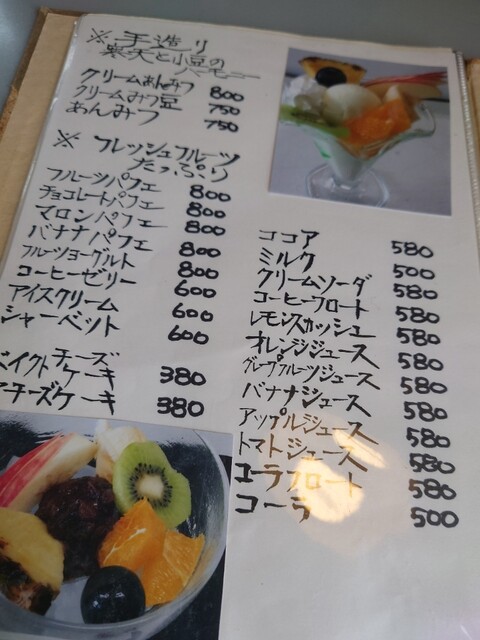 ※ 手造り
寒天と小豆のハーモニー
クリームあんみつ 800
クリームみつ豆 750
あんみつ 750
※ フレッシュフルーツ
たっぷり
フルーツパフェ 800
チョコレートパフェ 800
マロンパフェ 800
バナナパフェ 800
フルーツヨーグルト 800
コーヒーゼリー 600
アイスクリーム 600
シャーベット 600
ベイクトチーズ
ケーキ 380
アチーズケーキ 380
ココア 580
ミルク 500
クリームソーダ 580
コーヒーフロート 580
レモンスカッシュ 580
オレンジジュース 580
グレープフルーツジュース 580
バナナジュース 580
アップルジュース 580
トマトジュース 580
コーラフロート 580
コーラ 500